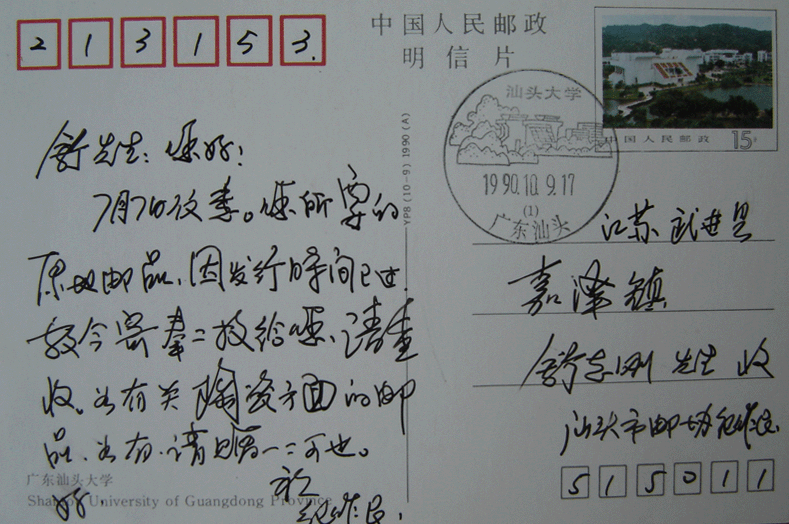 213153.
中国人民邮政
明信片
中国人民邮政
15分
汕头大学
1990.10.9.17
(1)
广东汕头
YP8 (10-9) 1990 (A)
舒先生：您好！
7月7日收 。您所需的
原地邮品，因发行时间已过，
故今寄奉二枚给您，请查
收。您有关陶瓷方面的邮
品，如有，请赐一二可也。
祝
好
江苏武进县
嘉泽镇
舒志刚 先生 收
汕头市邮协
515011
广东汕头大学
Shantou University of Guangdong Province